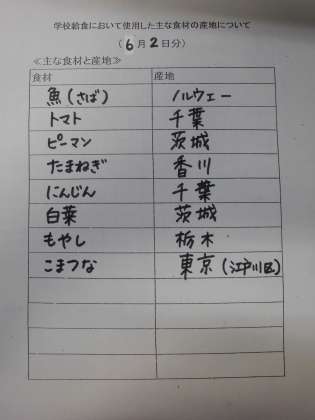 学校給食において使用した主な食材の産地について
（6月2日分）
≪主な食材と産地≫
食材 産地
魚（さば） ノルウェー
トマト 千葉
ピーマン 茨城
たまねぎ 香川
にんじん 千葉
白菜 茨城
もやし 栃木
こまつな 東京（江戸川区）